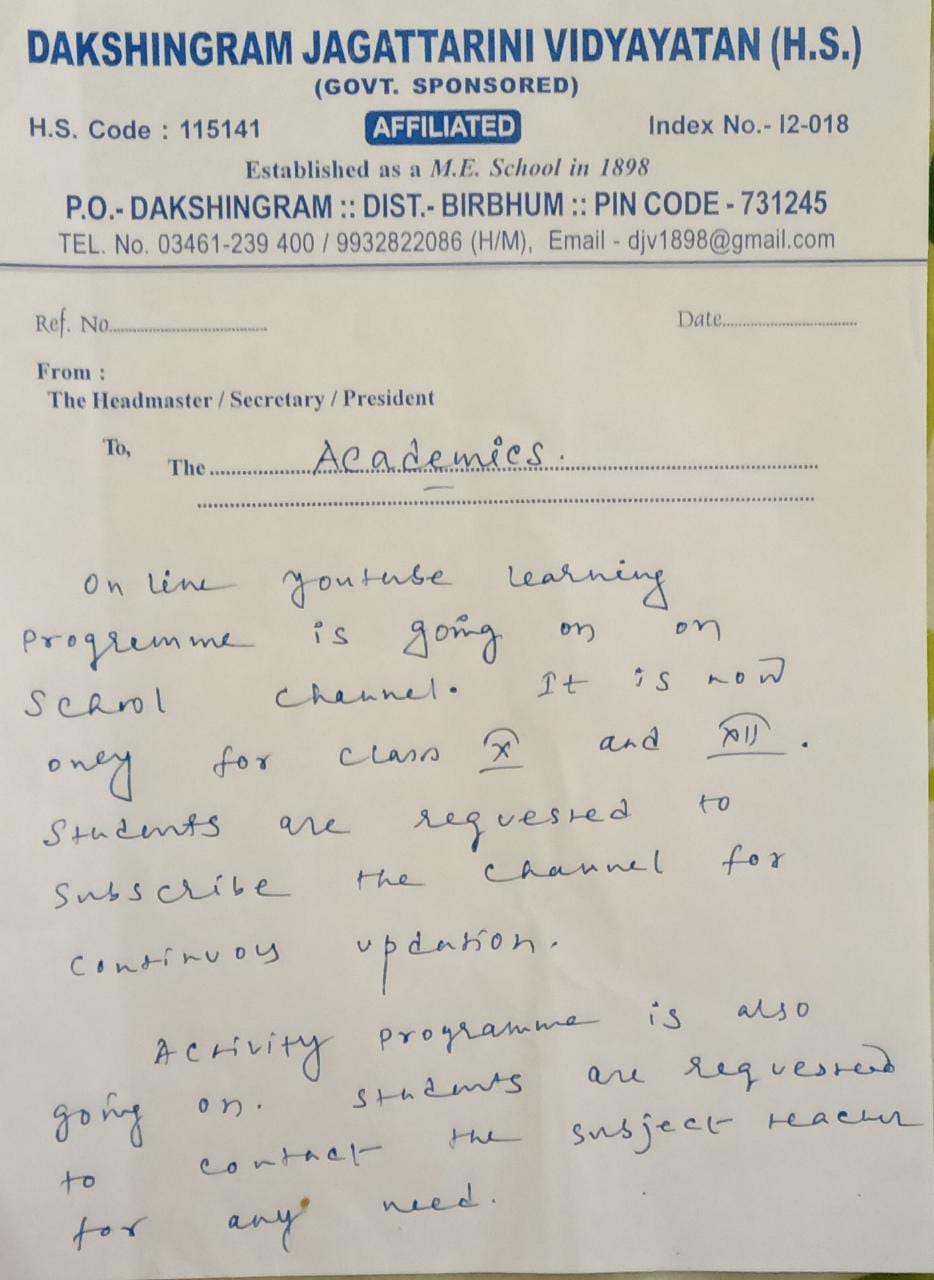 DAKSHINGRAM JAGATTARINI VIDYAYATAN (H.S.)
(GOVT. SPONSORED)
H.S. Code : 115141 AFFILIATED Index No.- I2-018
Established as a M.E. School in 1898
P.O.- DAKSHINGRAM :: DIST.- BIRBHUM :: PIN CODE - 731245
TEL. No. 03461-239 400 / 9932822086 (H/M), Email - djv1898@gmail.com
Ref. No.................................... Date..................................
From :
The Headmaster / Secretary / President
To,
The Academics.
On line youtube learning
programme is going on on
School channel. It is now
only for class X and XII.
Students are requested to
subscribe the channel for
continuous updation.
Activity programme is also
going on. Students are requested
to contact the subject teacher
for any need.